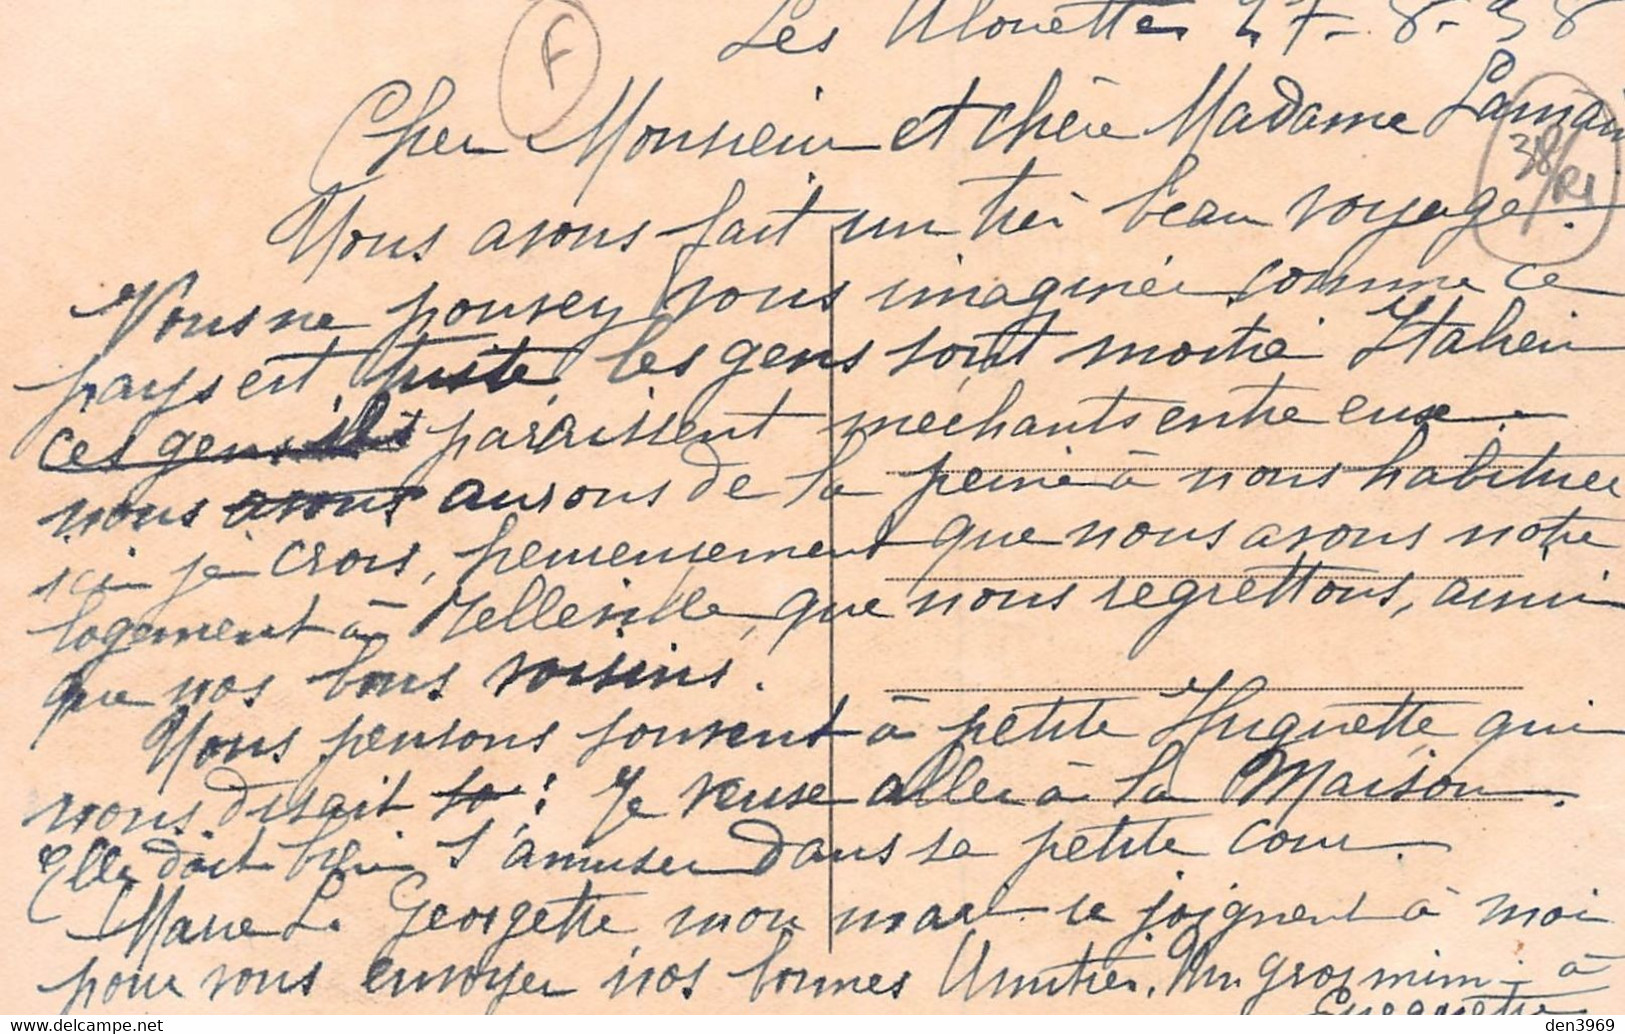 Les Alouettes 27-8-38
F
Cher Monsieur et chère Madame
38/R1
Nous avons fait un très beau voyage.
Vous ne pouvez vous imaginer comme ce
pays est triste, les gens sont moitié Italien
ces gens ils paraissent méchants entre eux.
nous avons aurons de la peine à nous habituer
ici je crois, heureusement que nous avons notre
logement à que nous regrettons, ainsi
que nos bons voisins.
Nous pensons souvent à petite Huguette qui
nous disait : Je veuse aller à la Maison.
Elle doit bien s'amuser dans sa petite cour.
Georgette mon mari se joignent à moi
pour vous envoyer nos bonnes Amitiés. Un gros mimi à
www.delcampe.net
den3969